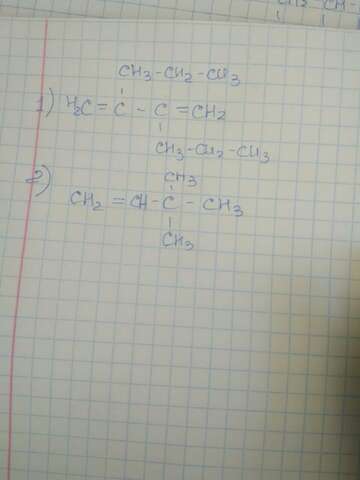 CH3-CH2-CH3
1) H2C=C-C=CH2
CH3-CH2-CH3
CH3
2) CH2=CH-C-CH3
CH3